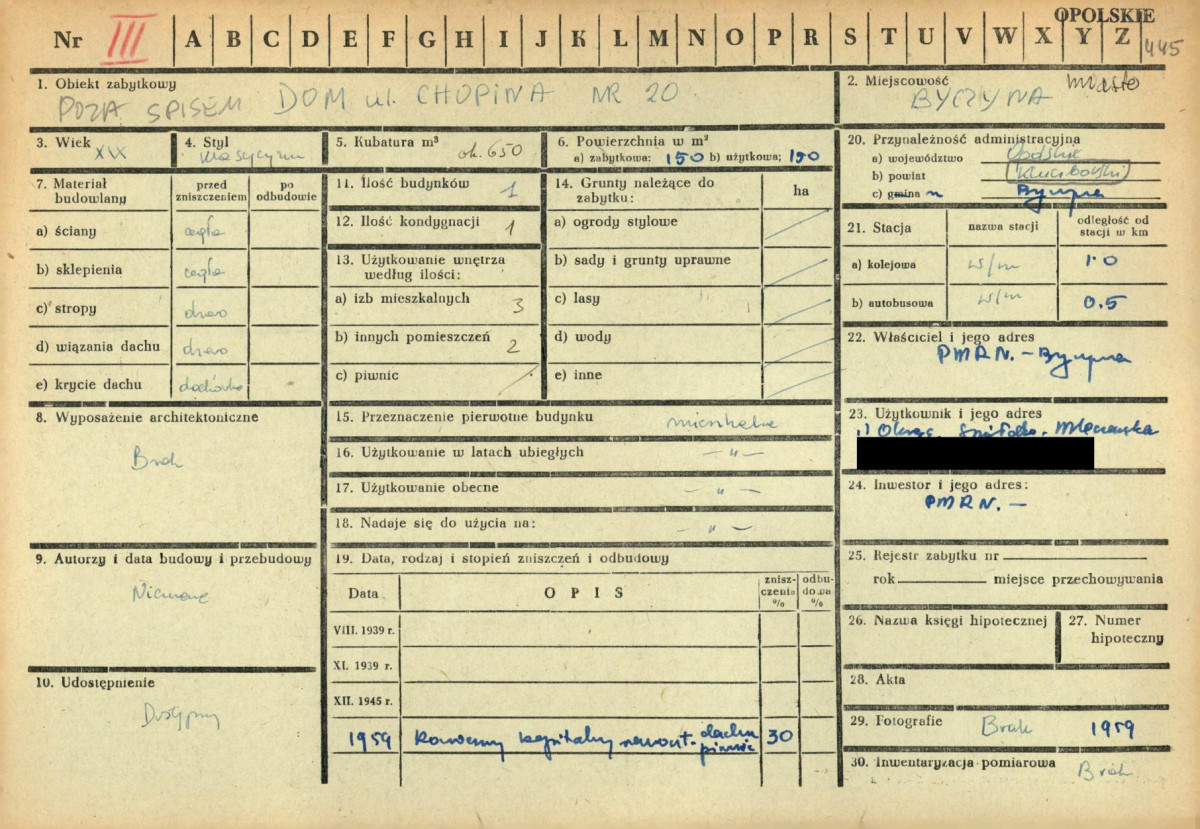 OPOLSKIE
Nr III A B C D E F G H I J K L M N O P R S T U V W X Y Z
445
1. Obiekt zabytkowy
POZA SPISEM DOM ul. CHOPINA NR 20
2. Miejscowość miasto
BYCZYNA
3. Wiek XIX
4. Styl klasycyzm
5. Kubatura m³ ok. 650
6. Powierzchnia w m²
a) zabytkowa: 150 b) użytkowa: 150
20. Przynależność administracyjna
a) województwo Opolskie
b) powiat Kluczborski
c) gmina Byczyna
7. Materiał budowlany
przed zniszczeniem
po odbudowie
a) ściany cegła
b) sklepienia cegła
c) stropy drewo
d) wiązania dachu drewo
e) krycie dachu dachówka
11. Ilość budynków 1
12. Ilość kondygnacji 1
13. Użytkowanie wnętrza według ilości:
a) izb mieszkalnych 3
b) innych pomieszczeń 2
c) piwnic
14. Grunty należące do zabytku:
ha
a) ogrody stylowe
b) sady i grunty uprawne
c) lasy
d) wody
e) inne
21. Stacja
nazwa stacji
odległość od stacji w km
a) kolejowa w/m 1.0
b) autobusowa w/m 0.5
22. Właściciel i jego adres
PMRN. - Byczyna
8. Wyposażenie architektoniczne
Brak
15. Przeznaczenie pierwotne budynku mieszkalne
16. Użytkowanie w latach ubiegłych - " -
17. Użytkowanie obecne - " -
18. Nadaje się do użycia na: - " -
23. Użytkownik i jego adres
Okręg. Spółdz. Mleczarska
24. Inwestor i jego adres:
PMRN. -
9. Autorzy i data budowy i przebudowy
Nieznane
19. Data, rodzaj i stopień zniszczeń i odbudowy
Data
OPIS
zniszczenia %
odbudowa %
VIII. 1939 r.
XI. 1939 r.
XII. 1945 r.
1959 kapitalny remont dachu piwnic 30
25. Rejestr zabytku nr
rok miejsce przechowywania
26. Nazwa księgi hipotecznej
27. Numer hipoteczny
10. Udostępnienie
Dostępny
28. Akta
29. Fotografie Brak 1959
30. Inwentaryzacja pomiarowa Brak